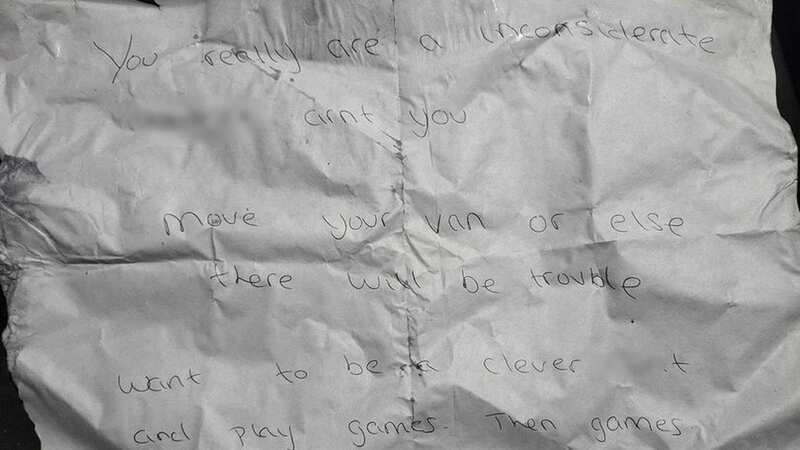 You really are a inconsiderate
arnt you
move your van or else
there will be trouble
want to be a clever
and play games. Then games